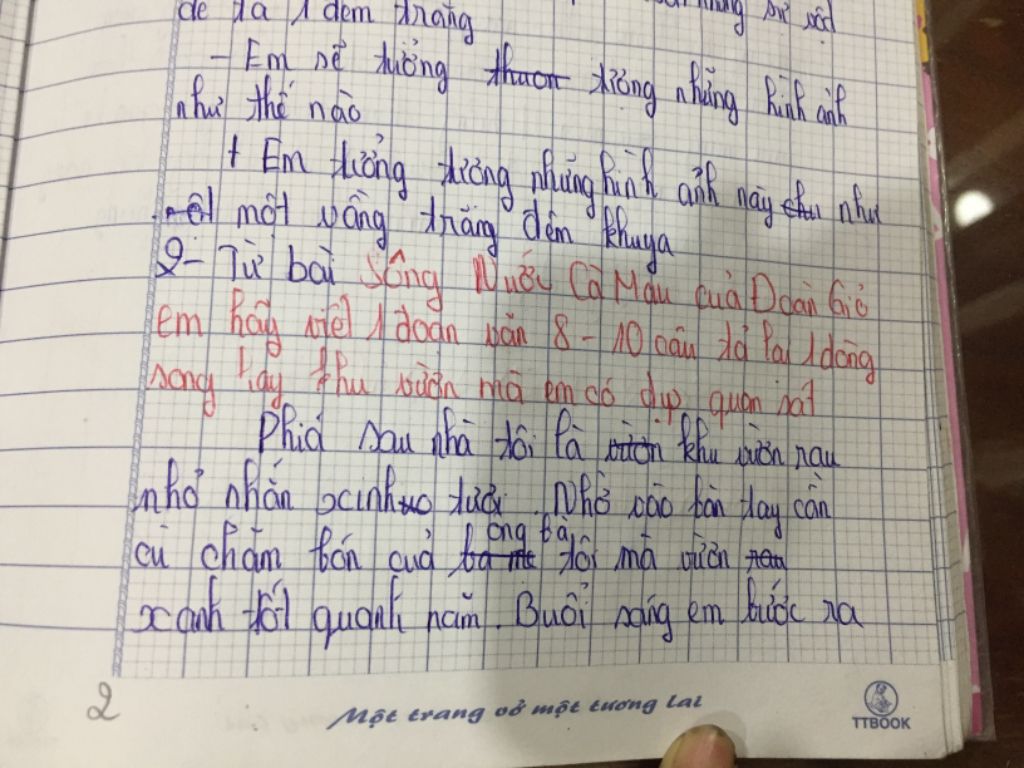 để tả 1 đêm trăng
- Em sẽ tưởng thươn tượng những hình ảnh
như thế nào
+ Em tưởng tượng những hình ảnh này như
một vầng trăng đêm khuya
2- Từ bài Sông Nước Cà Mau của Đoàn Giỏ
em hãy viết 1 đoạn văn 8 - 10 câu tả lại 1 dòng
song hay khu vườn mà em có dịp quan sát
Phía sau nhà tôi là vườn khu vườn rau
nhỏ nhắn xinh tươi. Nhờ vào bàn tay cần
cù chăm bón của ông bà tôi mà vườn rau
xanh tốt quanh năm. Buổi sáng em bước ra
2
Một trang vở một tương lai
TTBOOK